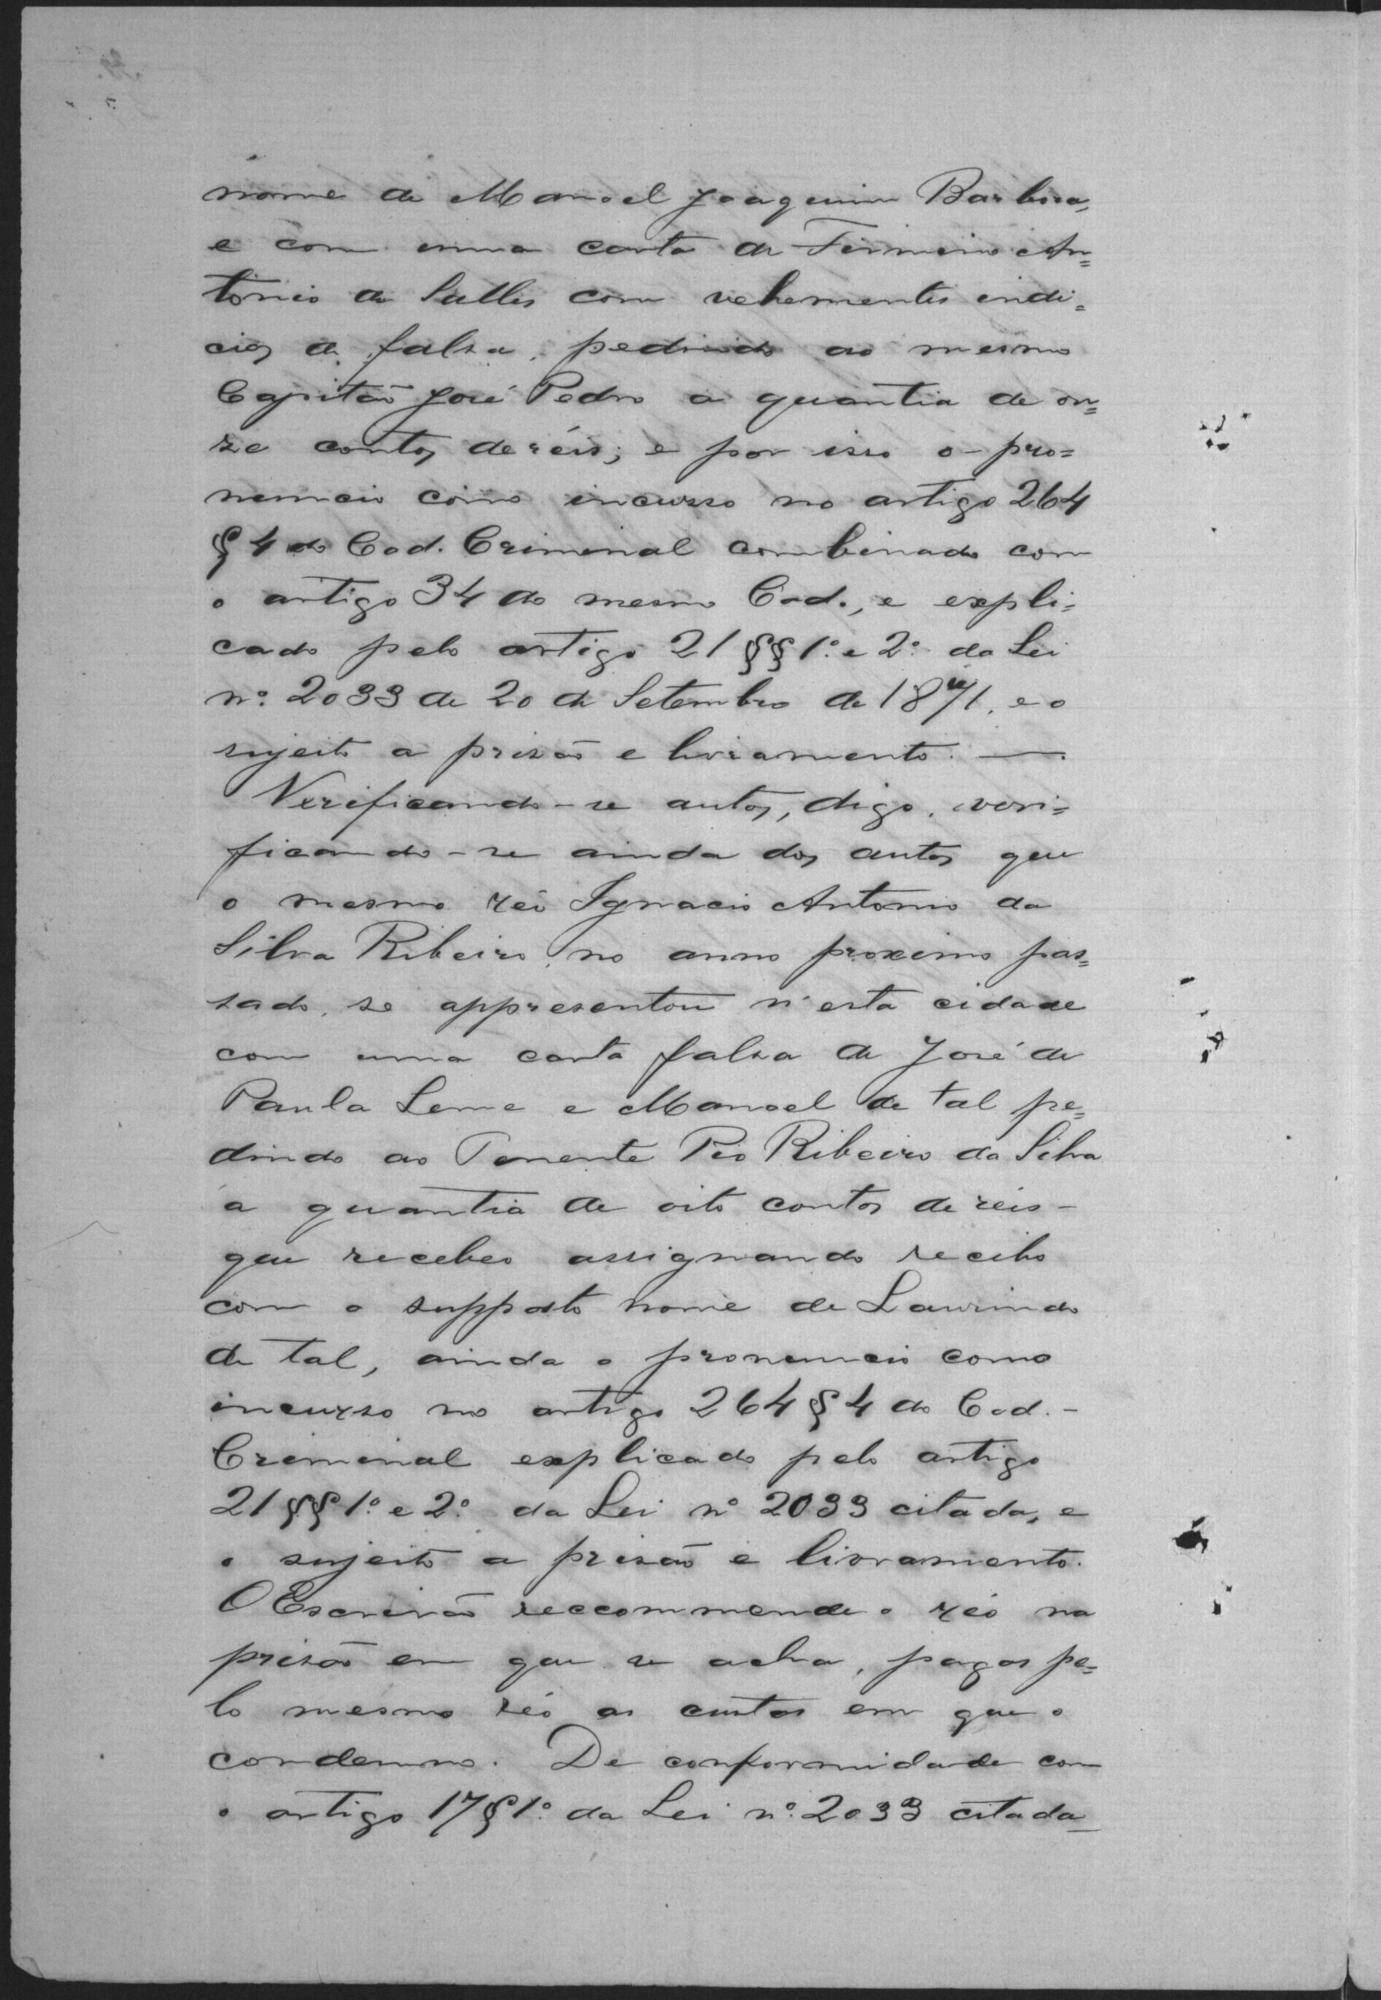 nome de Manoel Joaquim Barbosa,
e com uma carta de Firmino An=
tonio de Salles com vehementes indi=
cios de falsa, pedindo ao mesmo
Capitão José Pedro a quantia de on=
ze contos de réis; e por isso o pro=
nuncio como incurso no artigo 264
§ 4 do Cod. Criminal combinado com
o artigo 34 do mesmo Cod., e expli=
cado pelo artigo 21 §§ 1º e 2º da Lei
nº 2033 de 20 de Setembro de 1871, e o
sujeito a prisão e livramento. —
Verificando-se autos, digo, veri=
ficando-se ainda dos autos que
o mesmo réo Ignacio Antonio da
Silva Ribeiro, no anno proximo pas=
sado, se appresentou n'esta cidade
com uma carta falsa de José de
Paula Leme e Manoel de tal pe=
dindo ao Tenente Pio Ribeiro da Silva
a quantia de oito contos de réis -
que recebeo assignando recibo
com o supposto nome de Laurindo
de tal, ainda o pronuncio como
incurso no artigo 264 § 4 do Cod. -
Criminal explicado pelo artigo
21 §§ 1º e 2º da Lei nº 2033 citada, e
o sujeito a prisão e livramento.
O Escrivão reccommende o réo na
prisão em que se acha, pagas pe=
lo mesmo réo as custas em que o
condemno. De conformidade com
o artigo 17 § 1º da Lei nº 2033 citada